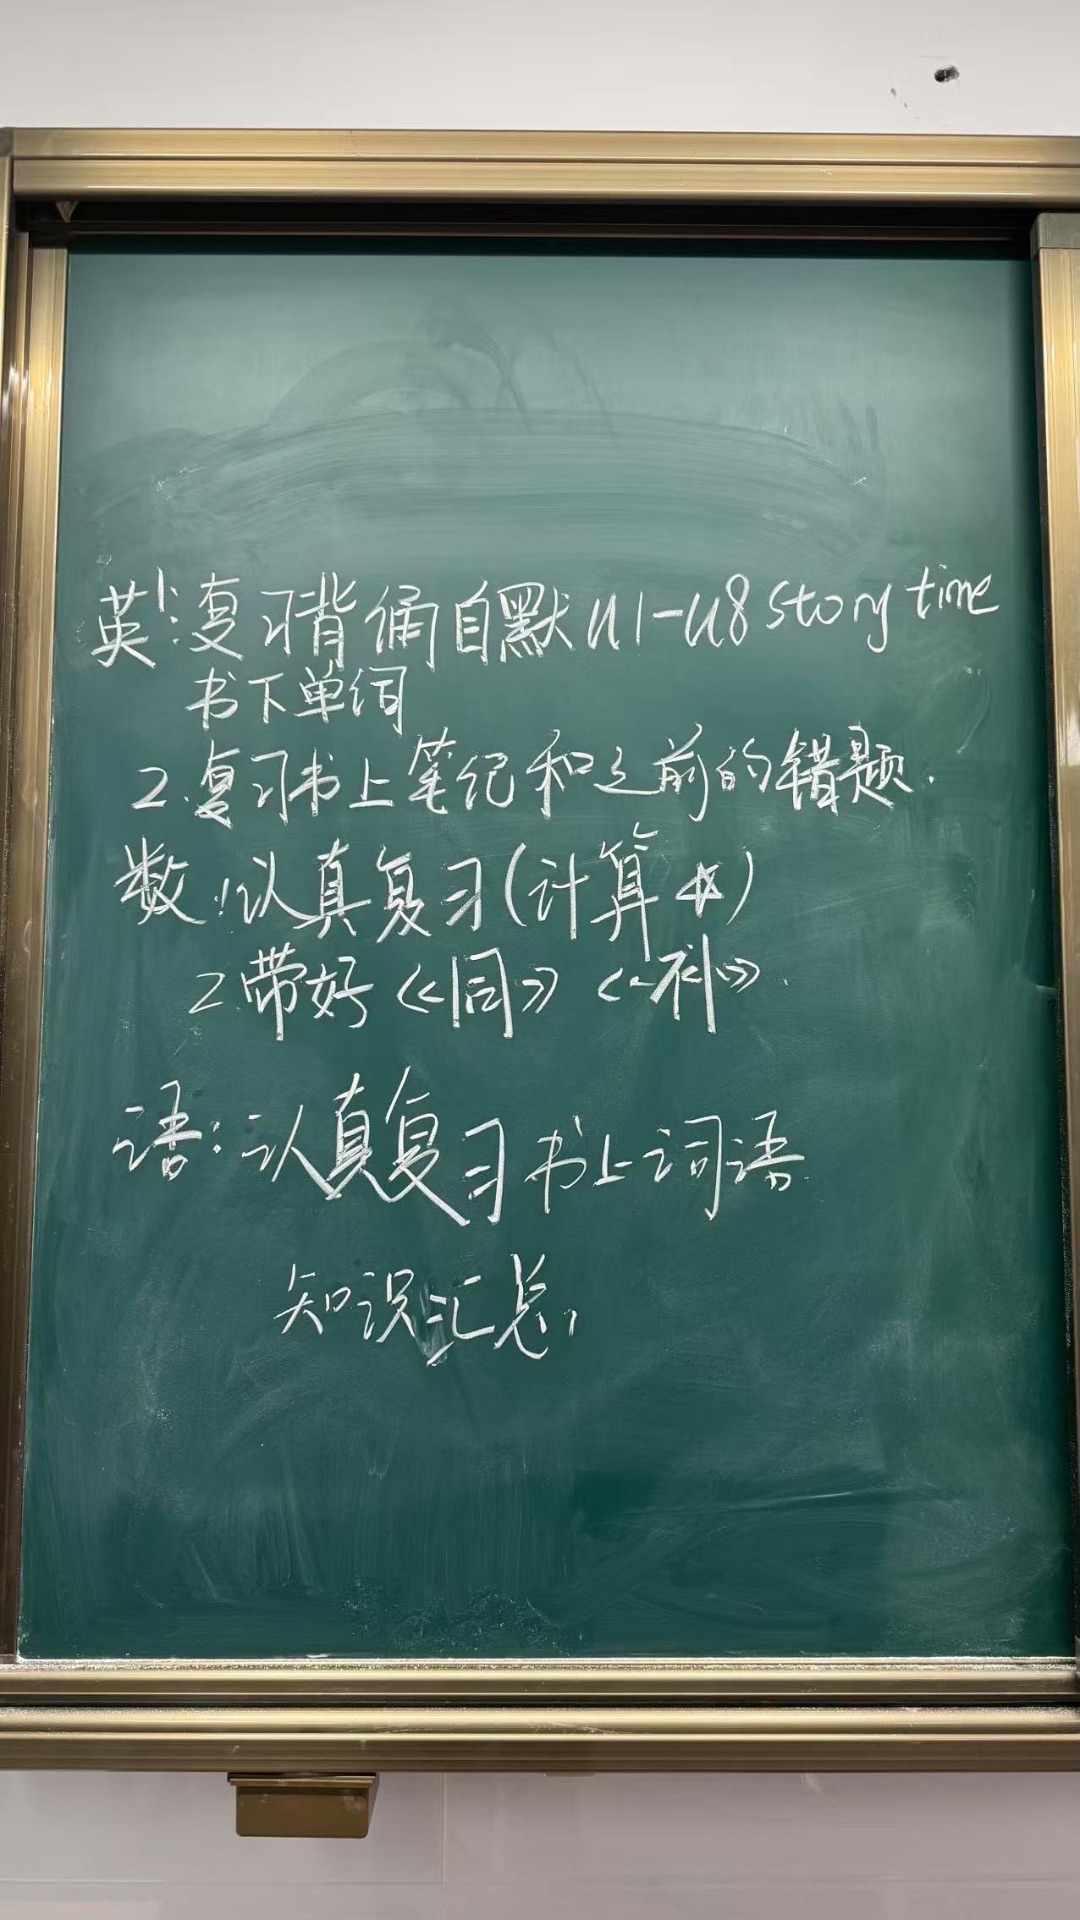 英:1.复习背俑自默U1-U8 story time
书下单词
2.复习书上笔记和之前的错题.
数:1.认真复习(计算☆)
2.带好《同》《补》
语:认真复习书上词语
知识汇总,